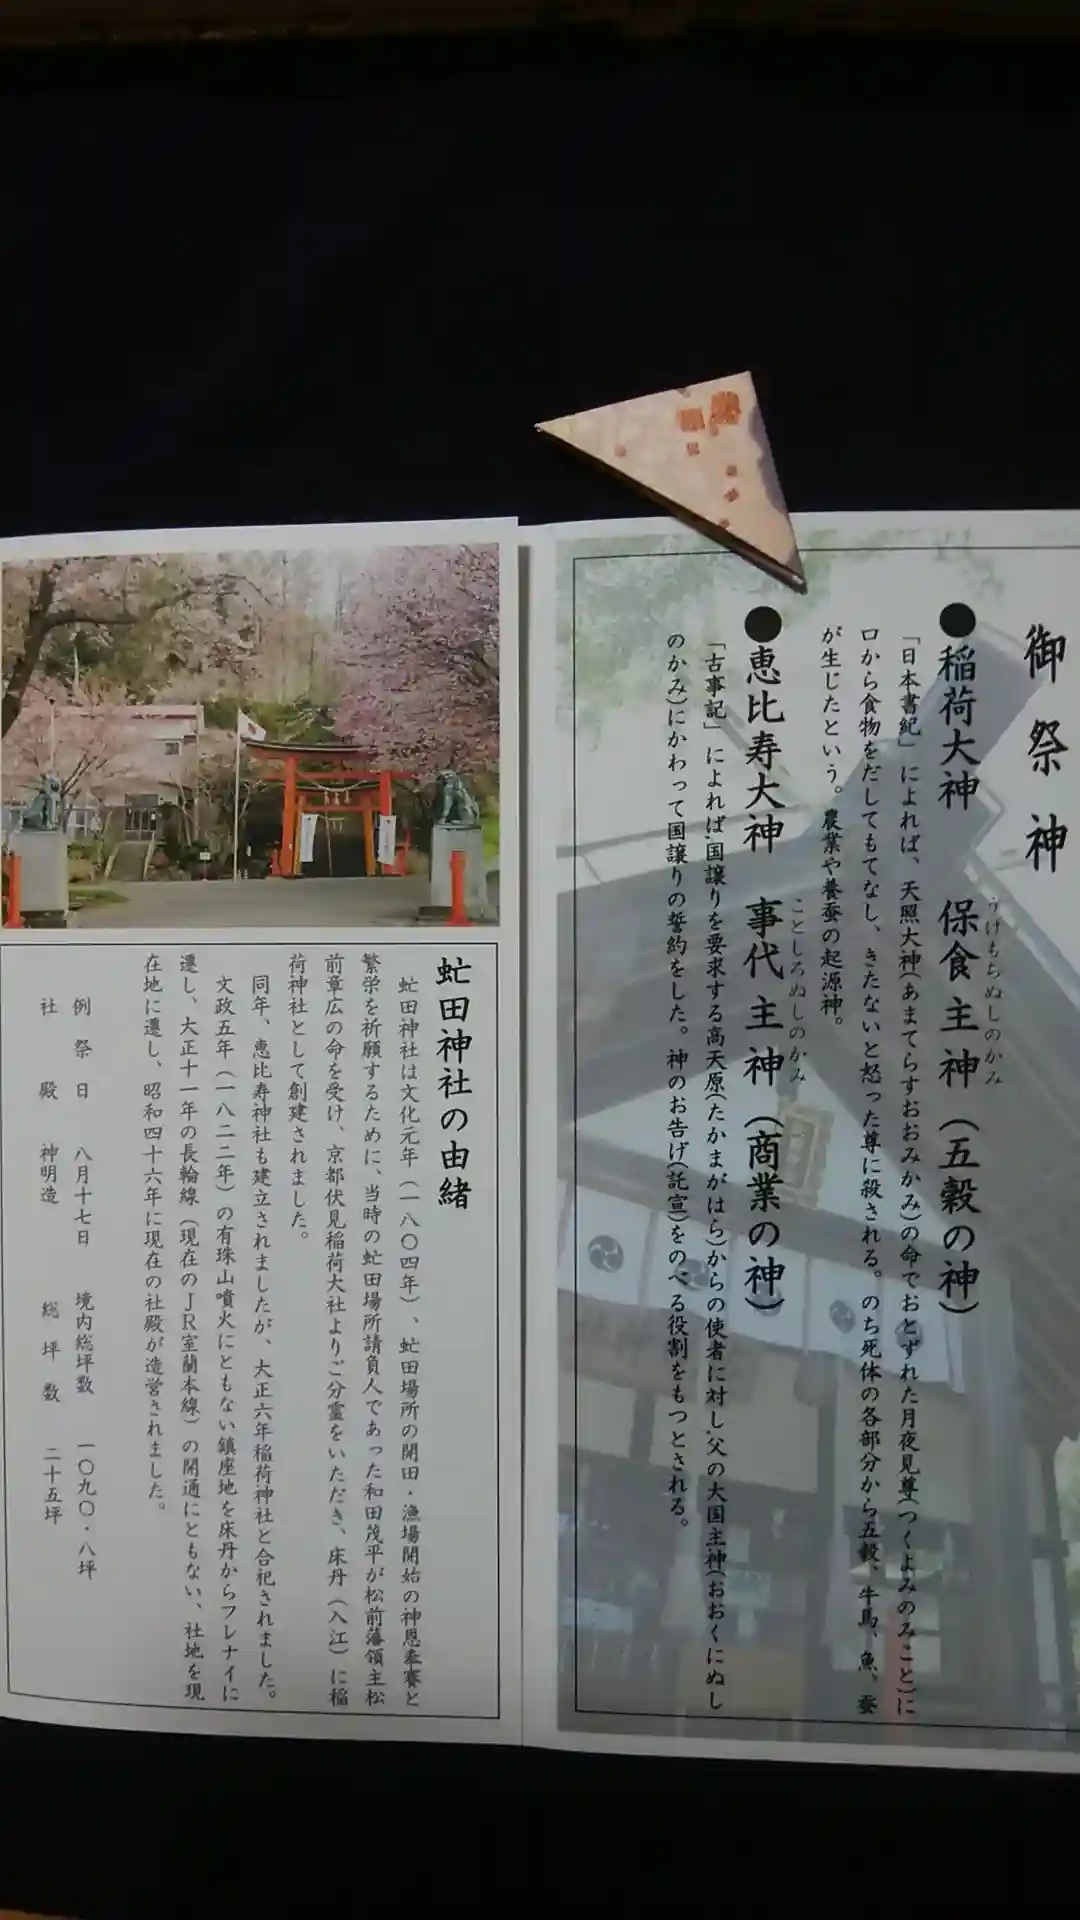 御祭神
●稲荷大神 保食主神(五穀の神)
うけもちぬしのかみ
「日本書紀」によれば、天照大神(あまてらすおおみかみ)の命でおとずれた月夜見尊(つくよみのみこと)に
口から食物をだしてもてなし、きたないと怒った尊に殺される。のち死体の各部分から五穀、牛馬、魚、蚕
が生じたという。農業や養蚕の起源神。
●恵比寿大神 事代主神(商業の神)
ことしろぬしのかみ
「古事記」によれば、国譲りを要求する高天原(たかまがはら)からの使者に対し、父の大国主神(おおくにぬし
のかみ)にかわって国譲りの誓約をした。神のお告げ(託宣)をのべる役割をもつとされる。
虻田神社の由緒
虻田神社は文化元年(一八〇四年)、虻田場所の開田・漁場開始の神恩奉賽と
繁栄を祈願するために、当時の虻田場所請負人であった和田茂平が松前藩領主松
前章広の命を受け、京都伏見稲荷大社よりご分霊をいただき、床丹(入江)に稲
荷神社として創建されました。
同年、恵比寿神社も建立されましたが、大正六年稲荷神社と合祀されました。
文政五年(一八二二年)の有珠山噴火にともない鎮座地を床丹からフレナイに
遷し、大正十一年の長輪線(現在のJR室蘭本線)の開通にともない、社地を現
在地に遷し、昭和四十六年に現在の社殿が造営されました。
例祭日 八月十七日 境内総坪数 一〇九〇・八坪
社殿 神明造 総坪数 二十五坪